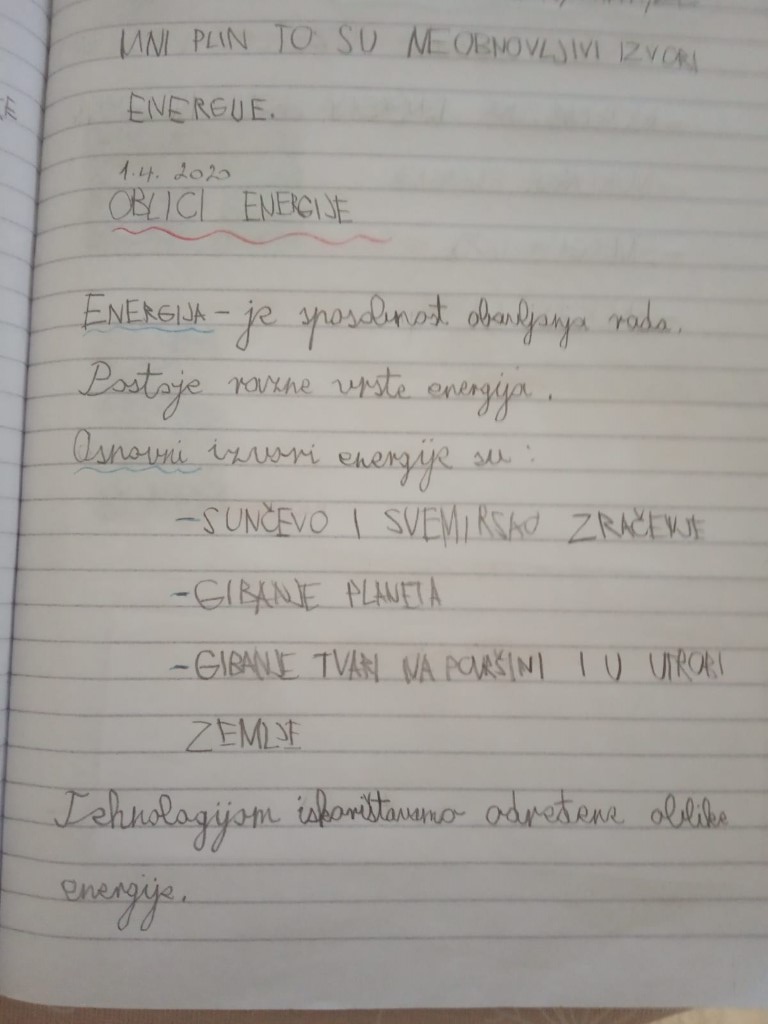 MNI PLIN TO SU NEOBNOVLJIVI IZVORI
ENERGIJE.
1.4. 2020
OBLICI ENERGIJE
ENERGIJA - je sposobnost obavljanja rada.
Postoje razne vrste energija.
Osnovni izvori energije su:
-SUNČEVO I SVEMIRSKO ZRAČENJE
-GIBANJE PLANETA
-GIBANJE TVARI NA POVRŠINI I U UTROBI
ZEMLJE
Tehnologijom iskorištavamo određene oblike
energije.